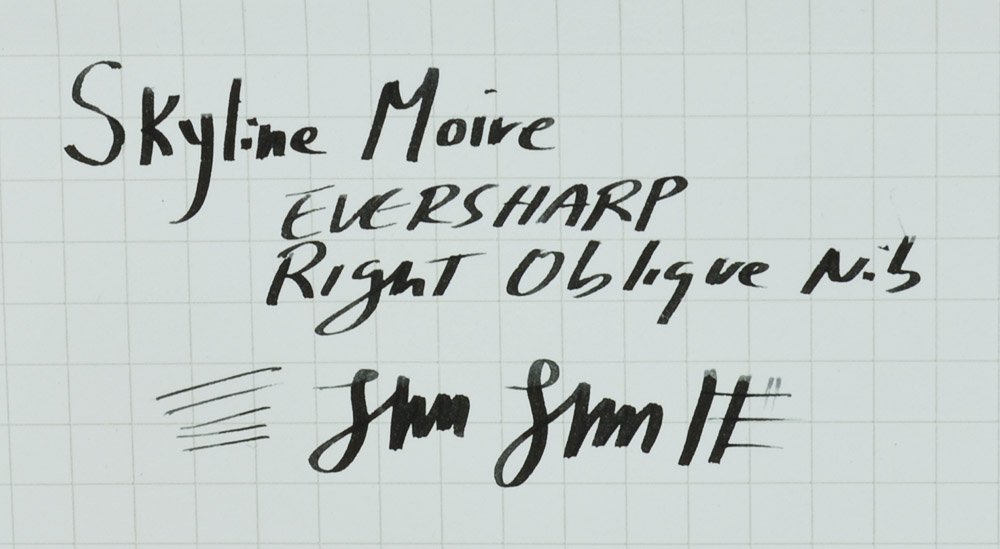 Skyline Moire
EVERSHARP
Right Oblique Nib